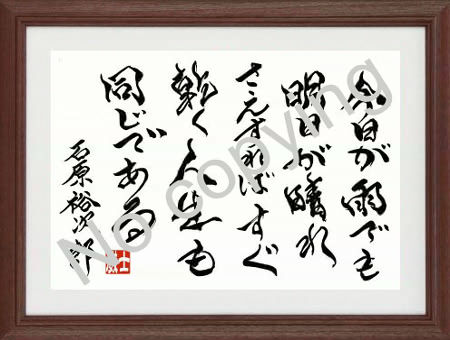 今日が雨でも
明日が晴れ
さえすればすぐ
乾く人生も
同じである
石原裕次郎
No copying